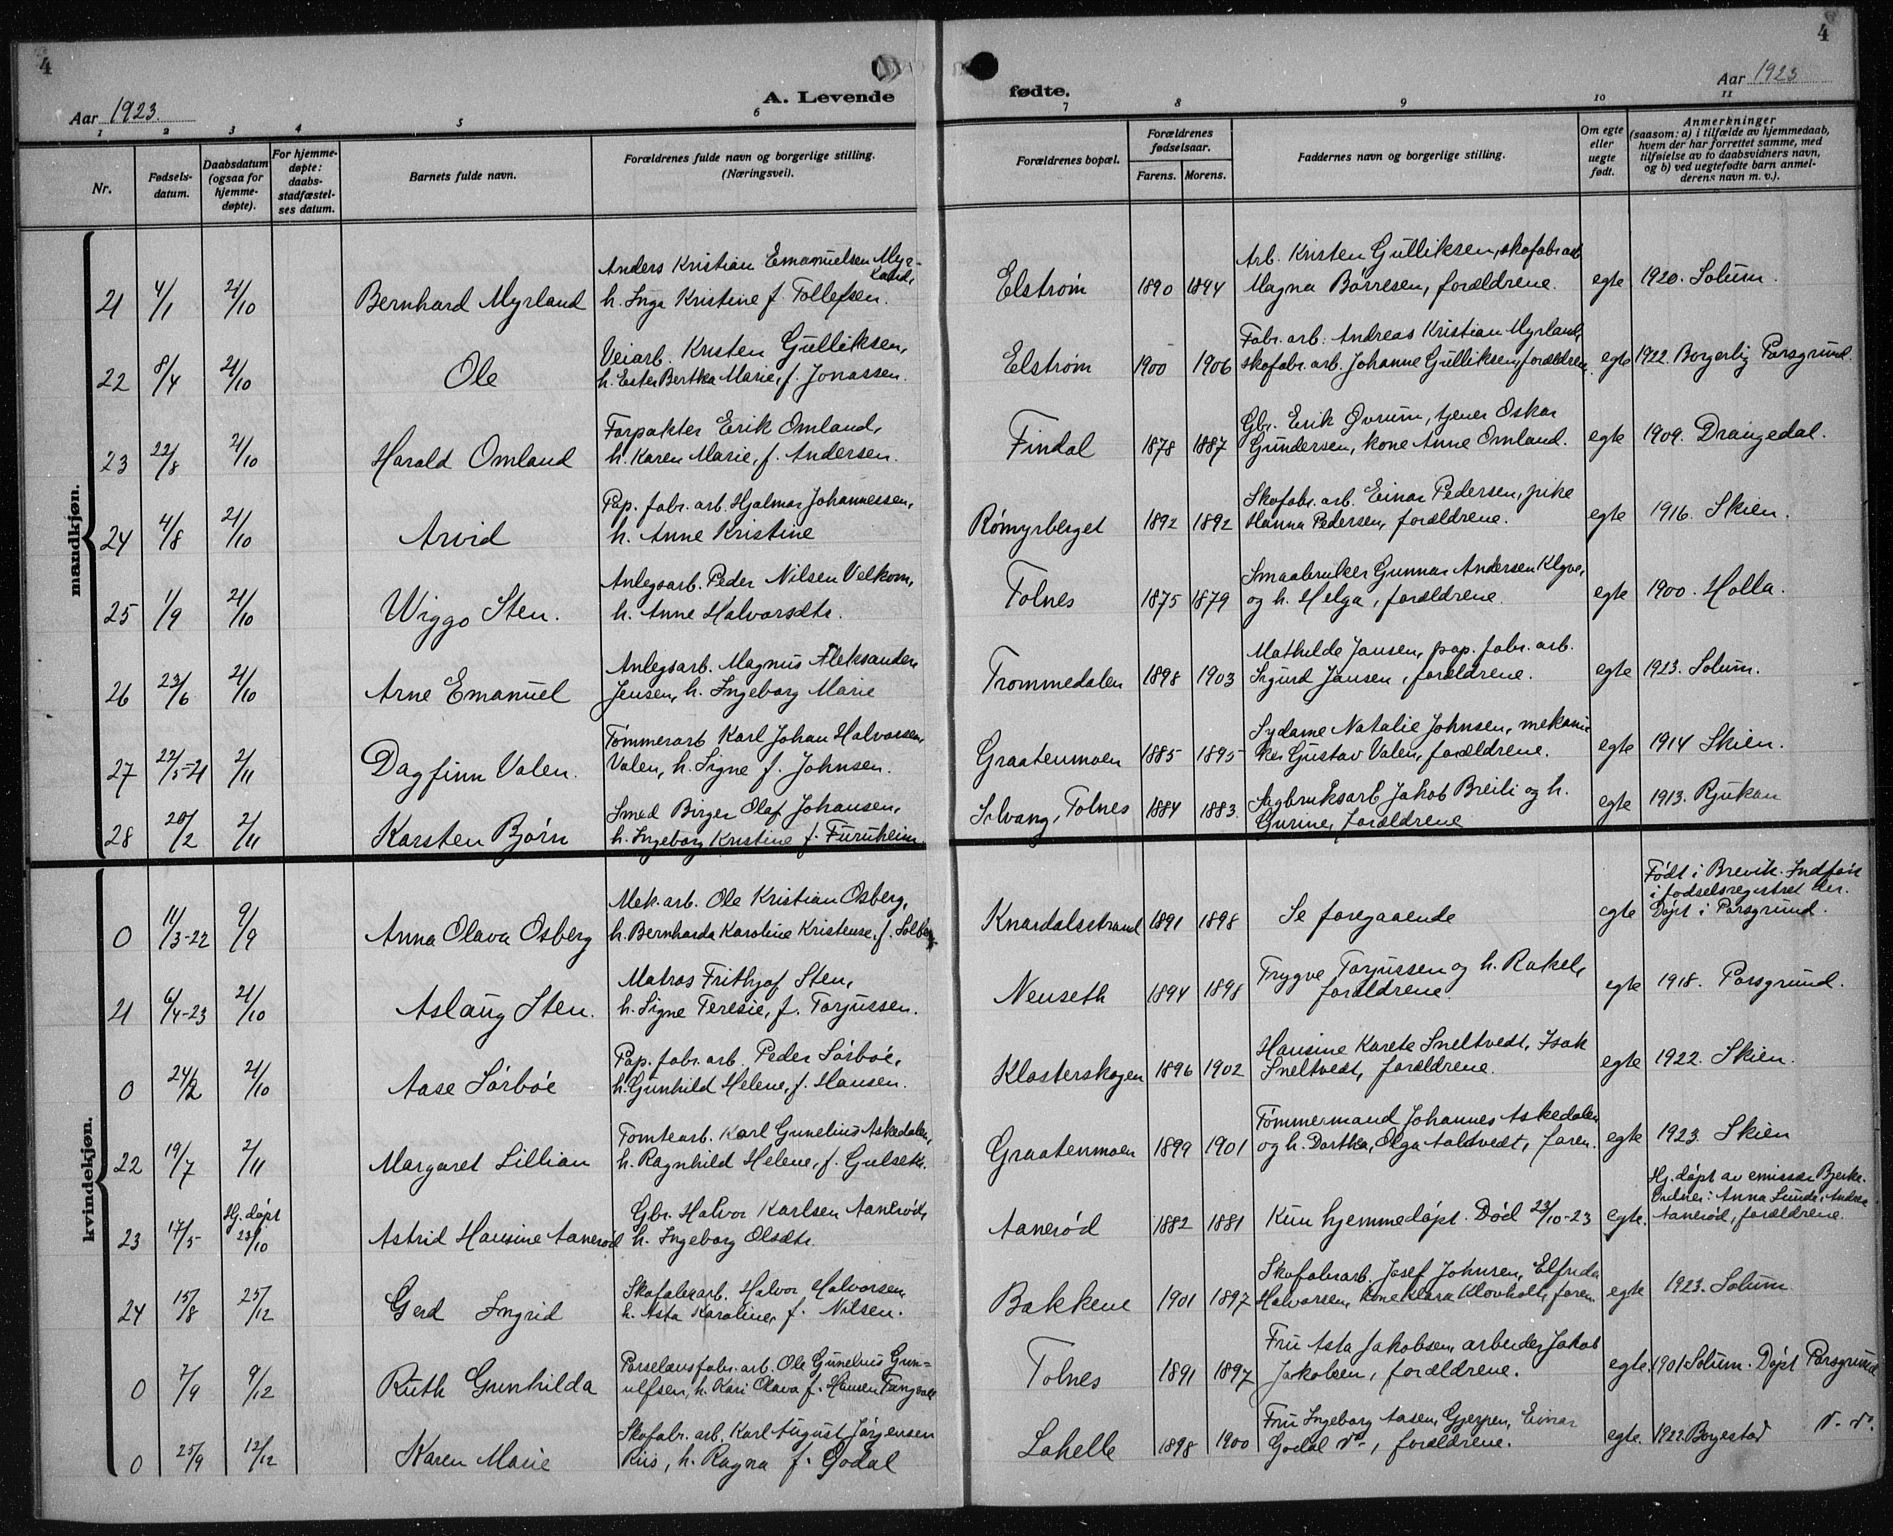 4
4
Aar 1923.
A. Levende
fødte.
Aar 1923
1 2 3 4 5 6 7 8 9 10 11
Nr.
Fødsels-
datum.
Daabsdatum
(ogsaa for
hjemme-
døpte).
For hjemme-
døpte:
daabs-
stadfæstel-
ses datum.
Barnets fulde navn.
Forældrenes fulde navn og borgerlige stilling.
(Næringsvei).
Forældrenes bopæl.
Forældrenes
fødselsaar.
Farens. Morens.
Faddernes navn og borgerlige stilling.
Om egte
eller
uegte
født.
Anmerkninger
(saasom: a) i tilfælde av hjemmedaab,
hvem der har forrettet samme, med
tilføielse av to daabsvidners navn,
og b) ved uegtefødte barn anmel-
derens navn m. v.).
mandkjøn.
21 4/1 21/10 Bernhard Myrland
Anders Kristian Emanuelsen Myr-
land,
h. Inga Kristine f. Tollefsen.
Elstrøm 1890 1894
Arb. Kristen Gulliksen, skofabr. arb.
Magna Borresen, forældrene.
egte 1920. Solum.
22 8/4 21/10 Ole
Veiarb. Kristen Gulliksen,
h. Ester Bertha Marie, f. Jonassen.
Elstrøm 1900 1906
Fabr. arb. Andreas Kristian Myrland,
skofabr. arb. Johanne Gulliksen, forældrene.
egte 1922. Borgerlig Porsgrund.
23 22/8 21/10 Harald Omland
Forpakter Erik Omland,
h. Karen Marie, f. Andersen.
Findal 1878 1887
Gbr. Erik Øvrum, tjener Oskar
Gundersen, kone Anne Omland.
egte 1909. Drangedal.
24 4/8 21/10 Arvid
Pap. fabr. arb. Hjalmar Johannessen,
h. Anne Kristine
Römyrberget 1892 1892
Skofabr. arb. Einar Pedersen, pike
Hanna Pedersen, forældrene.
egte 1916. Skien.
25 1/9 21/10 Wiggo Sten.
Anlegsarb. Peder Nilsen Velkom,
h. Anne Halvorsdtr.
Tolnes 1875 1879
Smaabruker Gunnar Andersen Klyve,
og h. Helga, forældrene.
egte 1900. Holla.
26 23/6 21/10 Arne Emanuel
Anlegsarb. Magnus Aleksander
Jensen, h. Ingeborg Marie
Trommedalen 1898 1903
Mathilde Jansen, pap. fabr. arb.
Sigurd Jansen, forældrene.
egte 1923. Solum.
27 22/5-21 2/11 Dagfinn Valen.
Tömmerarb Karl Johan Halvorsen
Valen, h. Signe f. Johnsen.
Graatenmoen 1885 1895
Sydame Natalie Johnsen, mekani-
ker Gustav Valen, forældrene.
egte 1914 Skien.
28 20/2 2/11 Karsten Bjørn
Smed Birger Olaf Johansen,
h. Ingeborg Kristine f. Furuheim
Solvang, Tolnes 1884 1883.
Sagbruksarb Jakob Breili og h.
Gurine, forældrene
egte 1913. Rjukan
kvindekjøn.
0 11/3-22 9/9 Anna Olava Osberg
Mek. arb. Ole Kristian Osberg,
h. Bernharda Karoline Kristense. f. Solberg
Knardalsstrand 1891 1898
Se foregaaende
egte
Født i Brevik. Indført
i fodselsregistret der.
Døpt i Porsgrund.
21 6/4-23 21/10 Aslaug Sten.
Matros Frithjof Sten,
h. Signe Teresie, f. Torjussen.
Nenseth 1894 1898
Trygve Torjussen og h. Rakel,
forældrene.
egte 1918. Porsgrund.
0 24/2 21/10 Aase Sörböe
Pap. fabr. arb. Peder Sörböe,
h. Gunhild Helene, f. Hansen.
Klosterskogen 1896 1902
Hansine Karete Sneltvedt, Isak
Sneltvedt, forældrene.
egte 1922. Skien.
22 19/7 2/11 Margaret Lillian
Tomtearb. Karl Gunelius Askedalen,
h. Ragnhild Helene, f. Gulseth.
Graatenmoen 1899 1901
Tømmermand Johannes Askedalen
og h. Dorthea, Olga Aaltvedt, faren.
egte 1923. Skien
23 17/5- Hj. døpt
23/10 Astrid Hansine Aanerød
Gbr. Halvor Karlsen Aanerød,
h. Ingeborg Olsdtr.
Aanerød 1882 1881
Kun hjemmedøpt. Død 23/10-23 egte.
Hj. døpt av emissær Bjerke.
Vidner: Anna Lunde, Andrea
Aanerød, forældrene.
24 15/8 25/12 Gerd Ingrid
Skofabrarb. Halvor Halvorsen
h. Asta Karoline, f. Nilsen.
Bakkene 1901 1897
Skofabrarb. Josef Johnsen, Elfrida
Halvorsen, kone Klara Klovholt, faren
egte 1923. Solum
0 7/9 9/12 Ruth Gunhilda
Porselænsfabr. arb. Ole Gunelius Gun-
ulfsen, h. Kari Olava f. Hansen Tangvald
Tolnes 1891 1897
Fru Asta Jakobsen, arbeider Jakob
Jakobsen, forældrene.
egte. 1901 Solum. Døpt Porsgrund
0 25/9 12/12 Karen Marie
Skofabr. arb. Karl August Jörgensen
Riis, h. Ragna f. Godal
Lahelle 1898 1900
Fru Ingeborg Aasen, Gjerpen, Einar
Godal do, forældrene.
egte. 1922. Borgestad do. do.